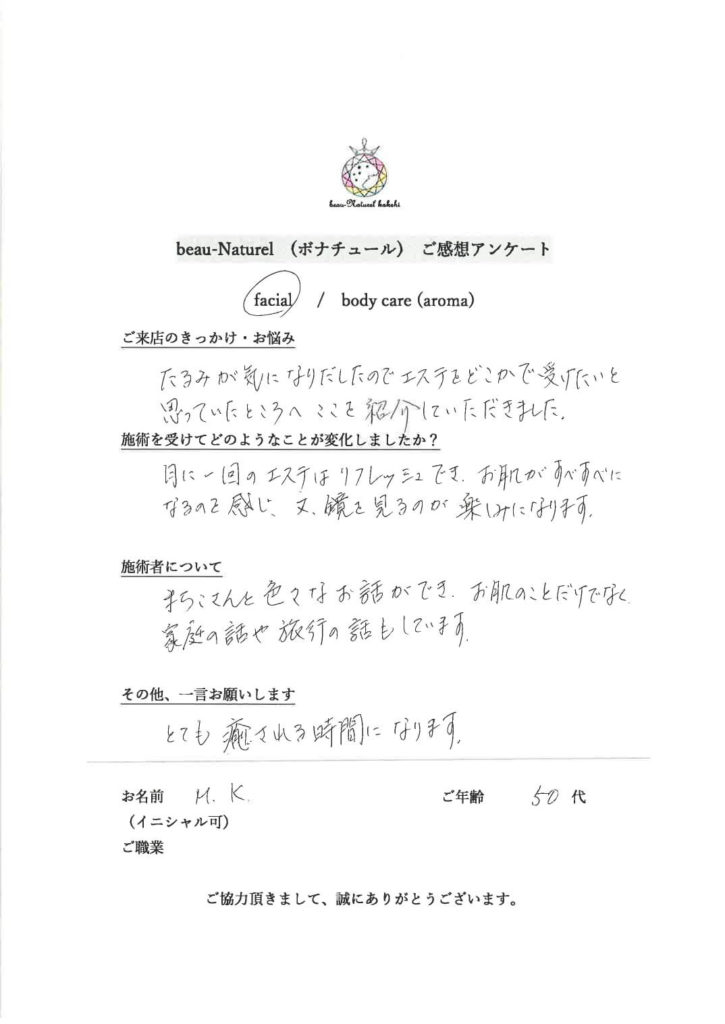 beau-Naturel kokohi
beau-Naturel （ボナチュール） ご感想アンケート
facial / body care (aroma)
ご来店のきっかけ・お悩み
たるみが気になりだしたのでエステをどこかで受けたいと
思っていたところへ ここを紹介していただきました。
施術を受けてどのようなことが変化しましたか？
月に一回のエステはリフレッシュでき、お肌がすべすべに
なるのを感じ、又、鏡を見るのが楽しみになります。
施術者について
まちこさんと色々なお話ができ、お肌のことだけでなく
家庭の話や旅行の話もしています。
その他、一言お願いします
とても癒される時間になります。
お名前 M. K. ご年齢 50 代
（イニシャル可）
ご職業
ご協力頂きまして、誠にありがとうございます。